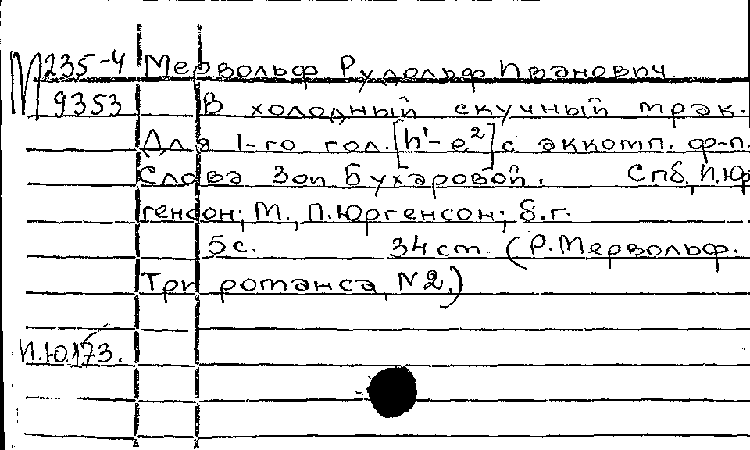 М 235-4 Мервольф Рудольф Иванович
9353 В холодный скучный мрак.
Для 1-го гол. [h¹-e²] с аккомп. ф-п.
Слова Зои Бухаровой. Спб, И.Юр
генсон; М., П.Юргенсон; б.г.
5с. 34см (Р.Мервольф.
Три романса, N2.)
И.Ю.173.